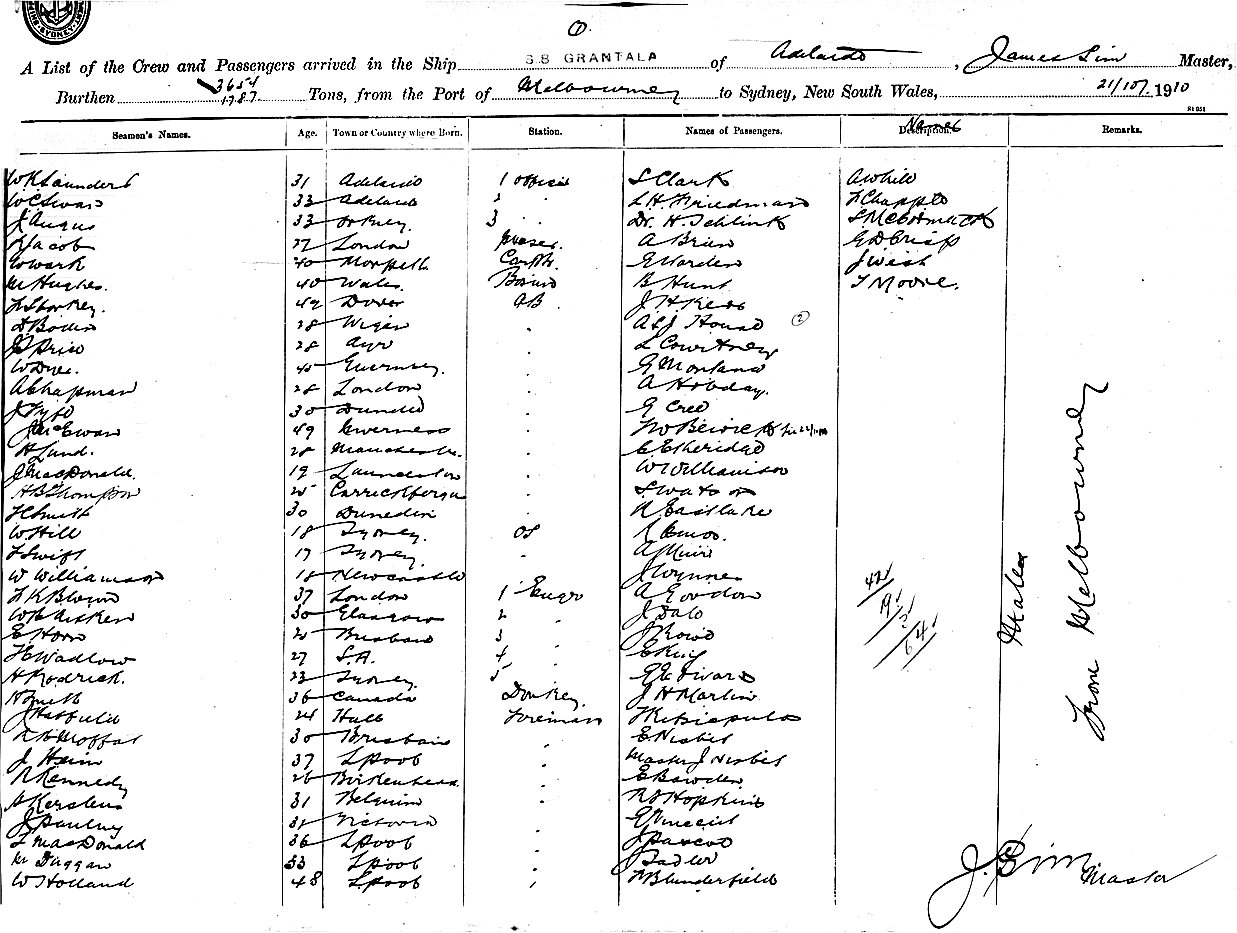 SYDNEY
1.
A List of the Crew and Passengers arrived in the Ship S.S GRANTALA of Adelaide, James Sim Master,
Burthen 3654 1787 Tons, from the Port of Melbourne to Sydney, New South Wales, 21/10/1910
Seamen's Names. Age. Town or Country where Born. Station. Names of Passengers. Description. Names Remarks.
W H Saunders 31 Adelaide 1 Officer S Clark A White
33 Adelaide 2 " L H Friedman F Chapple
J Angus 33 Orkney 3 " Dr. H. Schlink S McCormack
R Jacob 27 London A Brien G D Crisp
G Wark 40 Morpeth Carptr. G Warden J West
M Hughes. 40 Wales. Bosun B Hunt T Moore.
F Storkey. 49 Dover AB
D Bodin 28 Wigan " A & J House 2
J Price 28 Ayr " L Courtney
W Dyce. Guernsey. " G Montano
A Chapman 28 London " A Hobday.
J Fyfe 30 Dundee " G Cree
J McEwan 49 Inverness "
H Lund. 28 Manchester. " C Etheridge
J MacDonald. 19 Launceston " W Williamson
H B Thompson 25 Carrickfergus " S Watson
F Smith 30 Dunedin " R Eastlake
W Hill 18 Sydney. OS
F Swift 17 Sydney. " A Muir
W Williamson 18 Newcastle J Wynne
37 London 1 Engr A Gordon
W H Aitken 30 Glasgow 2 J Dale
E Horn Brisbane 3 J Rowe
F C Wadlow 27 S.A. 4 E King
H Rodrick. 23 Sydney. 5
H Smith 36 Canada Donkey. J H Martin
J Hatfield 24 Hull Foreman
Moffat 30 Brisbane " E Nisbet
J Heim 37 Lpool " Master J Nisbet
R Kennedy 26 Birkenhead. " E Bawden
Kerstens 31 Belgium " R J Hopkins
J Pauley Victoria "
F MacDonald 36 Lpool " J Pascoe
M Duggan 53 Lpool " Sadler
W Holland 48 Lpool " Blunderfield
42
19
3
64
Males
From Melbourne
J. Sim Master